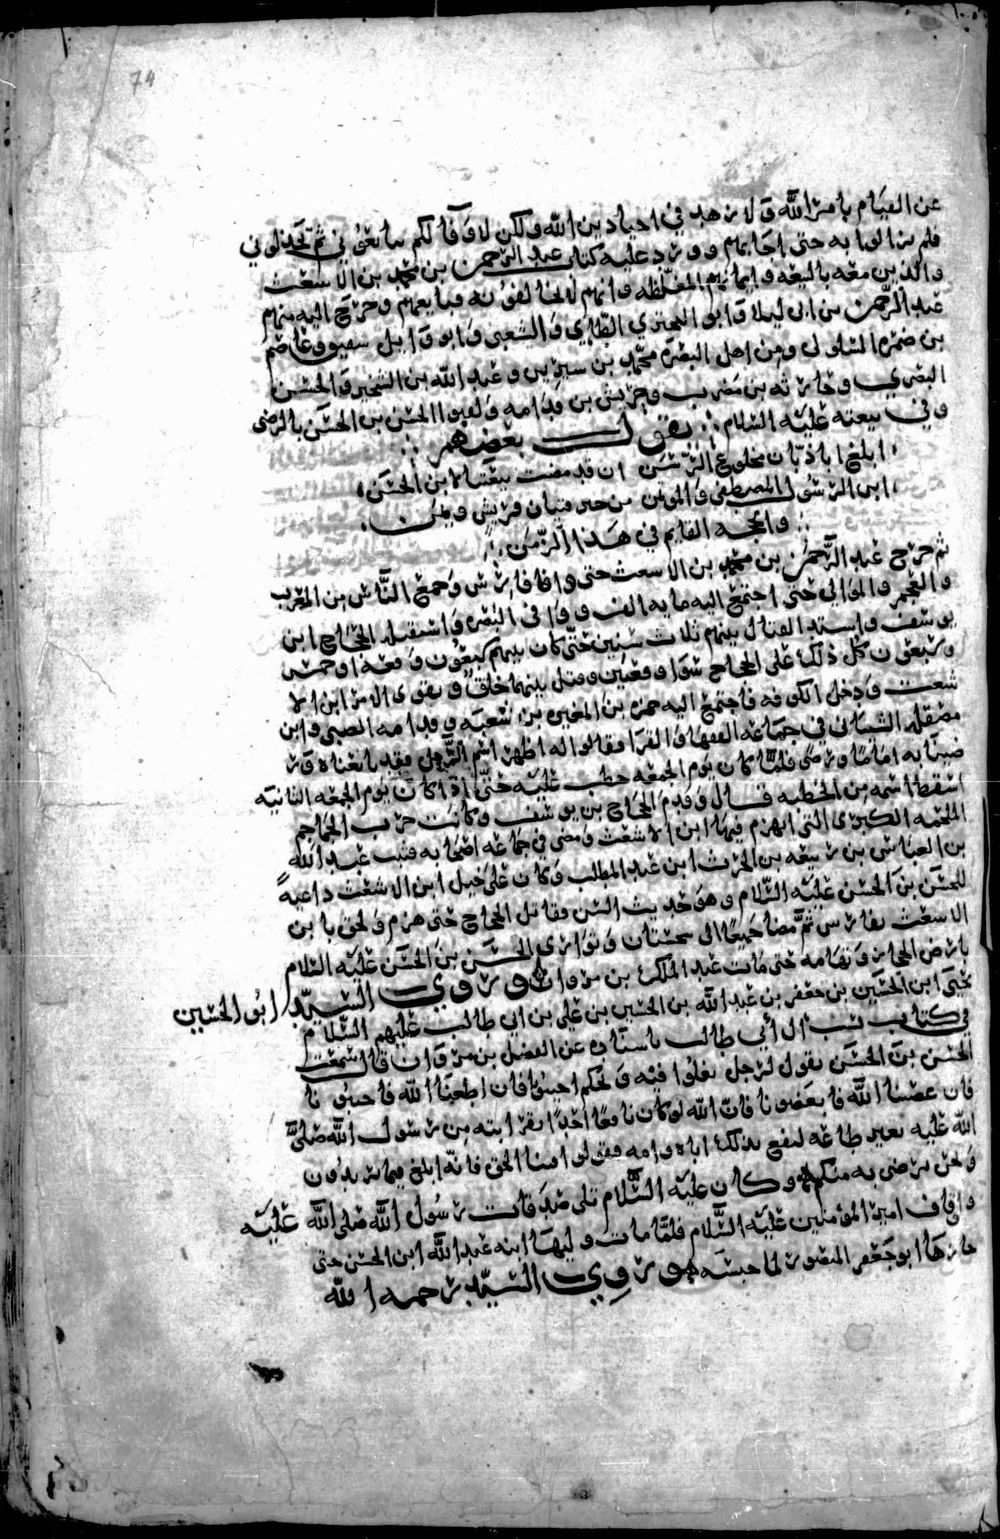 74
عن القيام بامر الله ولا زهد في احياء دين الله ولكن لا وفا لكم تبايعوني ثم تخذلوني
فلم يزالوا به حتى اجابهم وورد عليه كتاب عبد الرحمن بن محمد بن الاشعث
والذين معه بالبيعة وايمانهم المغلظه وانهم لا يخالفونه فبايعهم وخرج اليه منهم
عبد الرحمن بن ابي ليلا وابو البختري الطاي والشعبي وابو وايل شقيق وعاصم
بن ضمره السلولي ومن اهل البصره محمد بن سيرين وعبد الله بن الشخير والحسن
البصري وحارثه بن مضرب وحريش بن قدامه ولقبوا الحسن بن الحسن بالرضى
وفي بيعته عليه السلام يقول بعضهم
ابلغ ابا ذبان مخلوع الرسن ان قد مضت بيعتنا لابن الحسن
ابن الرسول المصطفى والموتمن من خير فتيان قريش ويمن
والحجه القايم في هذا الزمن
ثم خرج عبد الرحمن بن محمد بن الاشعث حتى وافا فارس وجمع الناس من العرب
والعجم والموالي حتى اجتمع اليه مايه الف ووافى البصره واستقبله الحجاج ابن
يوسف واشتد القتال بينهم ثلاث سنين حتى كان بينهم سبعون وقعه او خمس
وسبعون كل ذلك على الحجاج سوا وقعتين وقتل بينهما خلق وتقوى الامر ابن الا
شعث ودخل الكوفه فاجتمع اليه حمزه بن المغيره بن شعبه وقدامه الضبي وابن
مصقله الشيباني في جماعه الفقها والقرا فقالوا له اظهر اسم الرجل فقد بايعناه ور
ضينا به اماما ورضى فلما كان يوم الجمعه خطب عليه حتى اذا كان يوم الجمعه الثانيه
اسقط اسمه من الخطبه قال وقدم الحجاج بن يوسف وكانت حرب الجماجم
الملحمه الكبرى التي انهزم فيها ابن الاشعث ومضى في جماعه اصحابه فثبت عبد الله
بن العباس بن ربيعه بن الحرث ابن عبد المطلب وكان على خيل ابن الاشعث داعية
للحسن بن الحسن عليه السلام وهو حديث السن فقاتل الحجاج حتى هزم ولحق بابن
الاشعث بفارس ثم مضا جميعا الى سجستان وتوارى الحسن بن الحسن عليه السلام
بارض الحجاز وتهامه حتى مات عبد الملك بن مروان وروى السيد ابو الحسين
يحيى ابن الحسين بن جعفر بن عبد الله بن الحسين بن علي بن ابي طالب عليهم السلام
في كتاب نسب ال ابي طالب باسناده عن الفضل بن مرزوق قال سمعت
الحسن بن الحسن يقول لرجل يغلوا فيه ويحكم احبونا فان اطعنا الله فاحبونا
فان عصينا الله فابغضونا فان الله لو كان نافعا احدا بقرابته من رسول الله صلى
الله عليه بغير طاعه لنفع بذلك اباه وامه فقولوا فينا الحق فانه ابلغ فيما تريدون
ونحن نرضى به منكم وكان عليه السلام تلي صدقات رسول الله صلى الله عليه
واوقاف امير المؤمنين عليه السلام فلما مات وليها ابنه عبد الله ابن الحسن حتى
حازها ابو جعفر المنصور لما حبسه وروى السيد رحمه الله